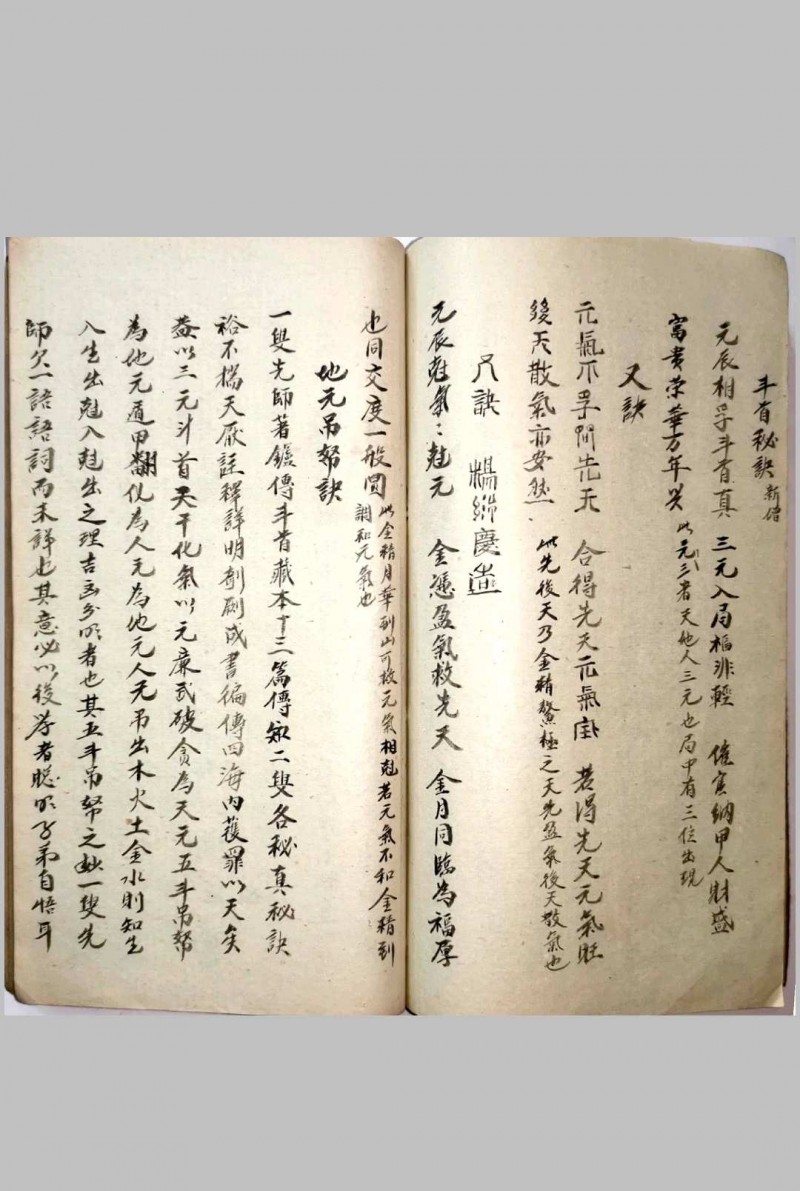 斗首秘訣 新增
元辰相孚斗首真 三元入局福非輕 催官納甲人財盛
富貴荣華万年兴 此元三者天地人三元也局中有三位出現
又訣
元氣不孚問先天 合得先天元氣 若得先天元氣旺
後天散氣亦安然 此先後天乃金精鰲極之天先盈氣後天散氣也
又訣 楊 慶
元辰尅氣〻尅元 金憑盈氣救先天 金月同臨為福厚
也同交度一般圓 此金精月華到山可救元氣相尅若元氣不和金精到
調和元氣也
地元吊努訣
一叟先師著 傳斗首藏本十三篇傳 二叟各秘真秘訣
裕不揣天厭註釋詳明剞劂成書徧傳四海內獲罪以天矣
蓋以三元斗首天干化氣以元廉武破貪為天元五斗吊努
為地元遁甲翻仪為人元為地元人元吊出木火土金水則知生
入生出尅入尅出之理吉凶分明者也其五斗吊努之妙一叟先
師欠一語語詞而未詳也其意必以後学者聪明子弟自悟耳